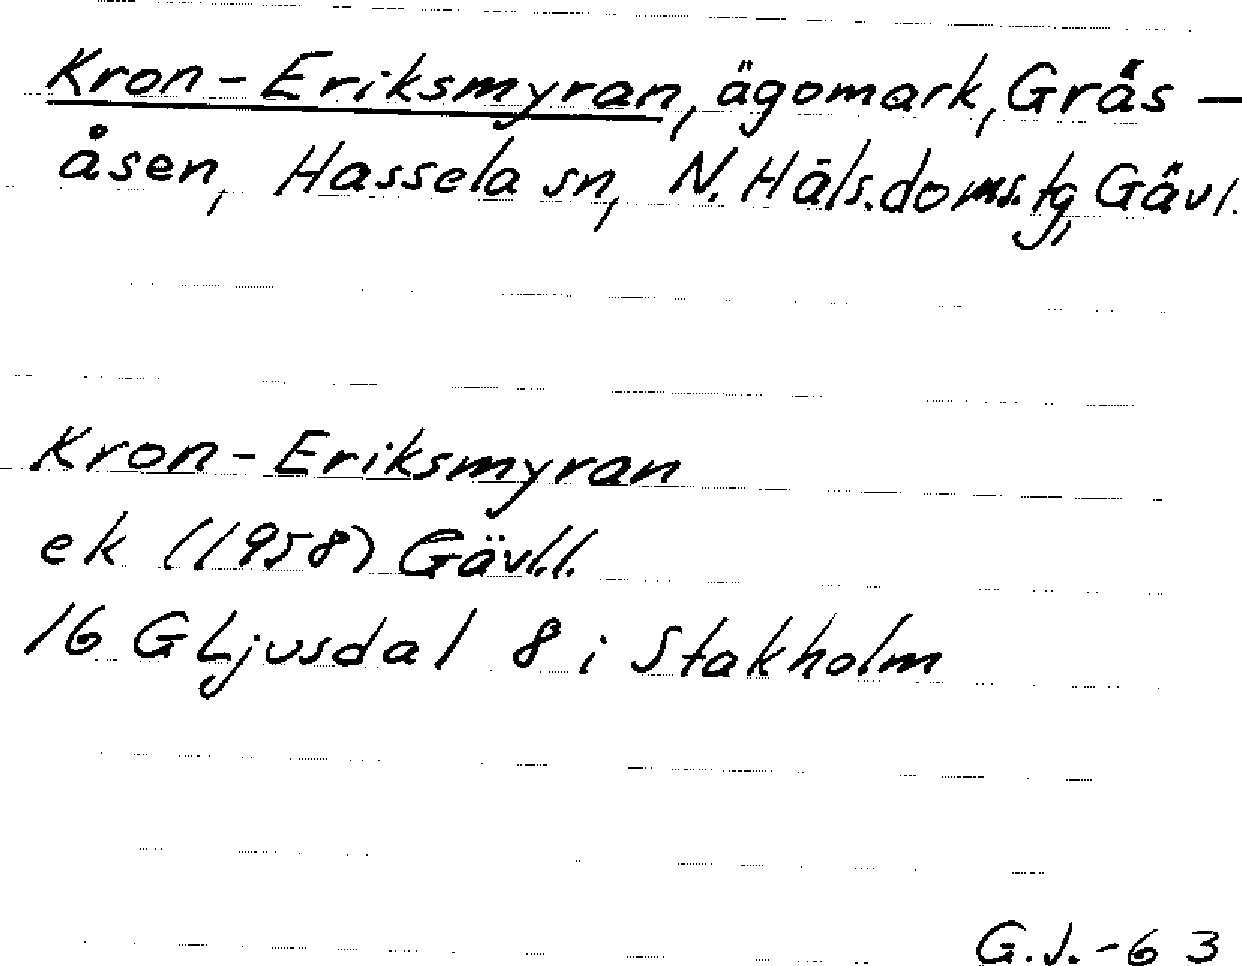 Kron-Eriksmyran, ägomark, Grås-
åsen, Hassela sn, N. Häls. doms.tg, Gävl.
Kron-Eriksmyran
ek (1958) Gävl.l.
16 G Ljusdal 8 i Stakholm
G.J.-63